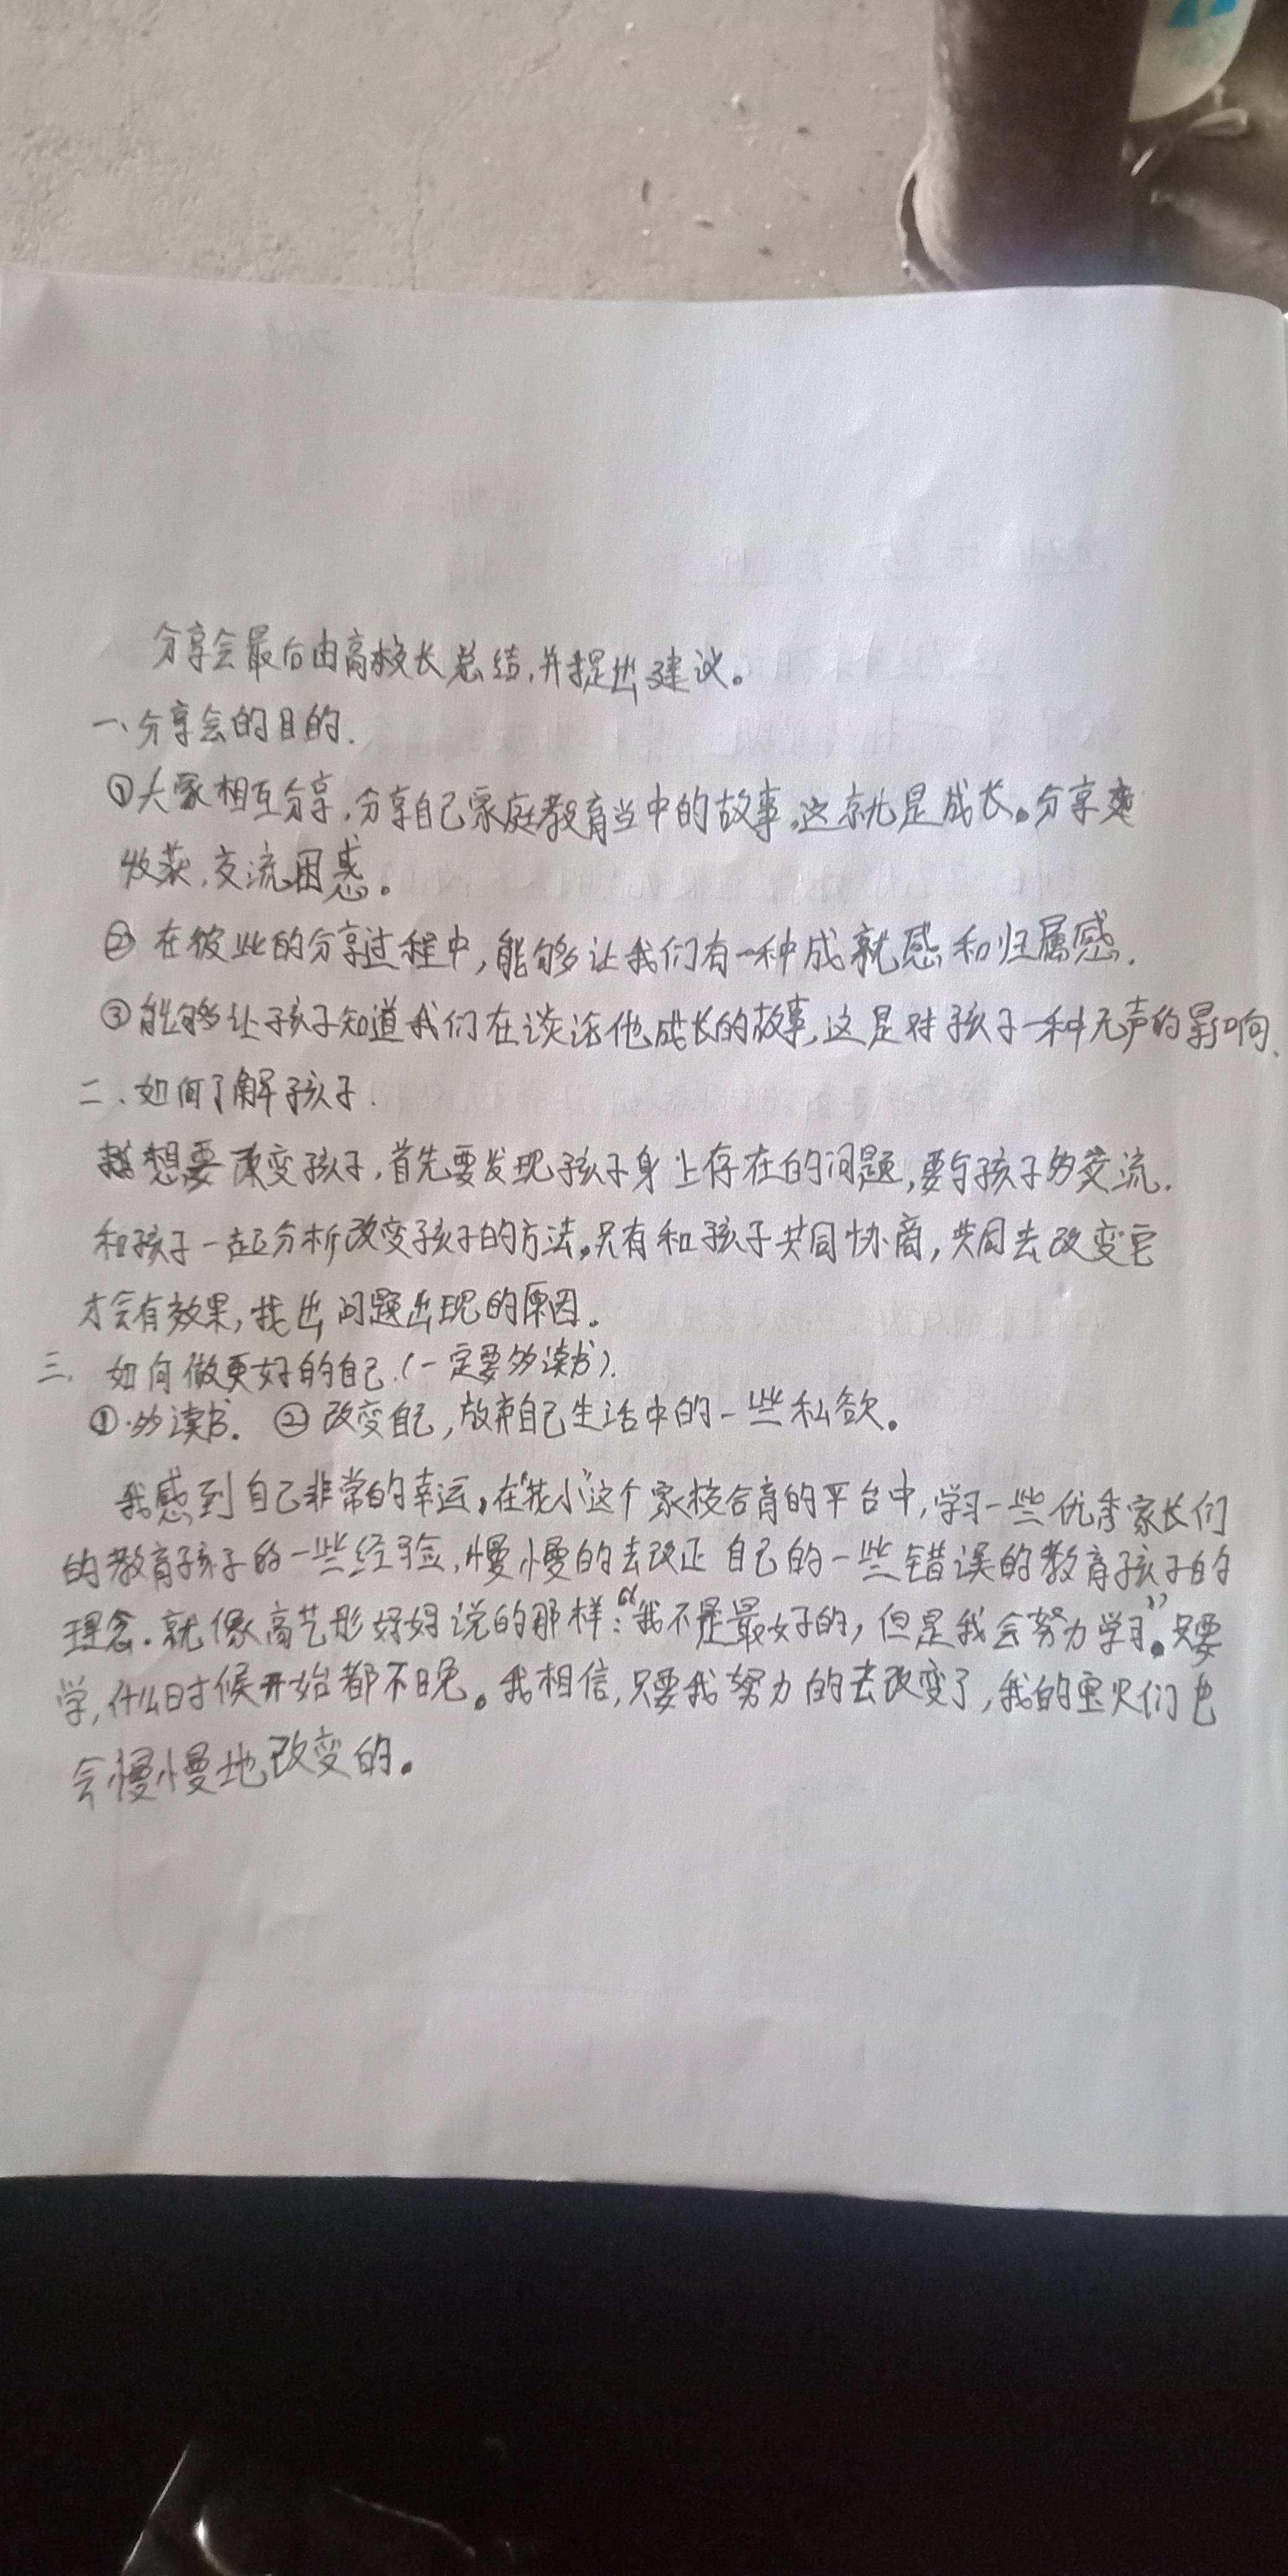 分享会最后由高校长总结,并提出建议。
一、分享会的目的.
①大家相互分享,分享自己家庭教育当中的故事,这就是成长。分享
收获,交流困惑。
② 在彼此的分享过程中,能够让我们有一种成就感和归属感.
③能够让孩子知道我们在谈论他成长的故事,这是对孩子一种无声的影响.
二、如何了解孩子.
想要改变孩子,首先要发现孩子身上存在的问题,要与孩子多交流.
和孩子一起分析改变孩子的方法,只有和孩子共同协商,共同去改变它
才会有效果,找出问题出现的原因。
三. 如何做更好的自己.(一定要多读书).
①.多读书. ②改变自己,放弃自己生活中的一些私欲。
我感到自己非常的幸运,在"花小"这个家校合育的平台中,学习一些优秀家长们
的教育孩子的一些经验,慢慢的去改正自己的一些错误的教育孩子的
理念.就像高艺彤妈妈说的那样:"我不是最好的,但是我会努力学习"。只要
学,什么时候开始都不晚。我相信,只要我努力的去改变了,我的宝贝们也
会慢慢地改变的。